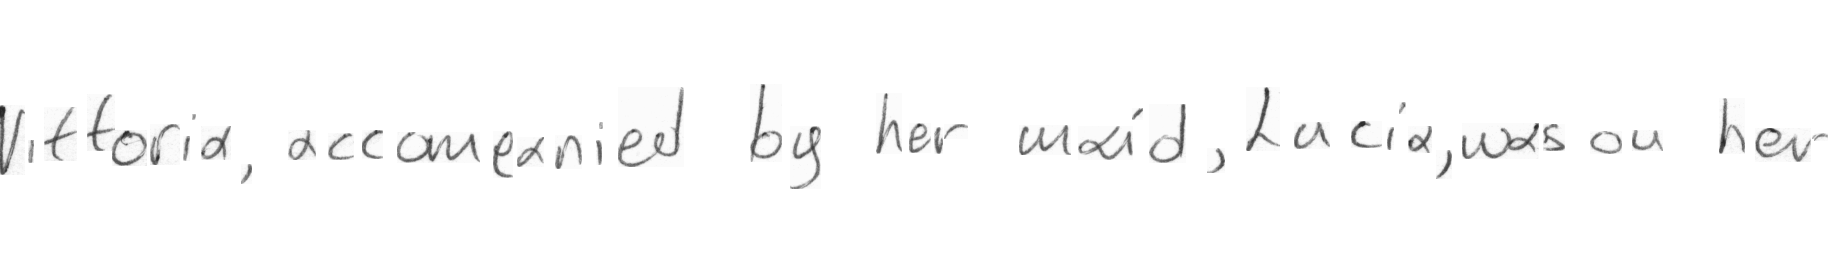 Vittoria, accompanied by her maid, Lucia, was on her